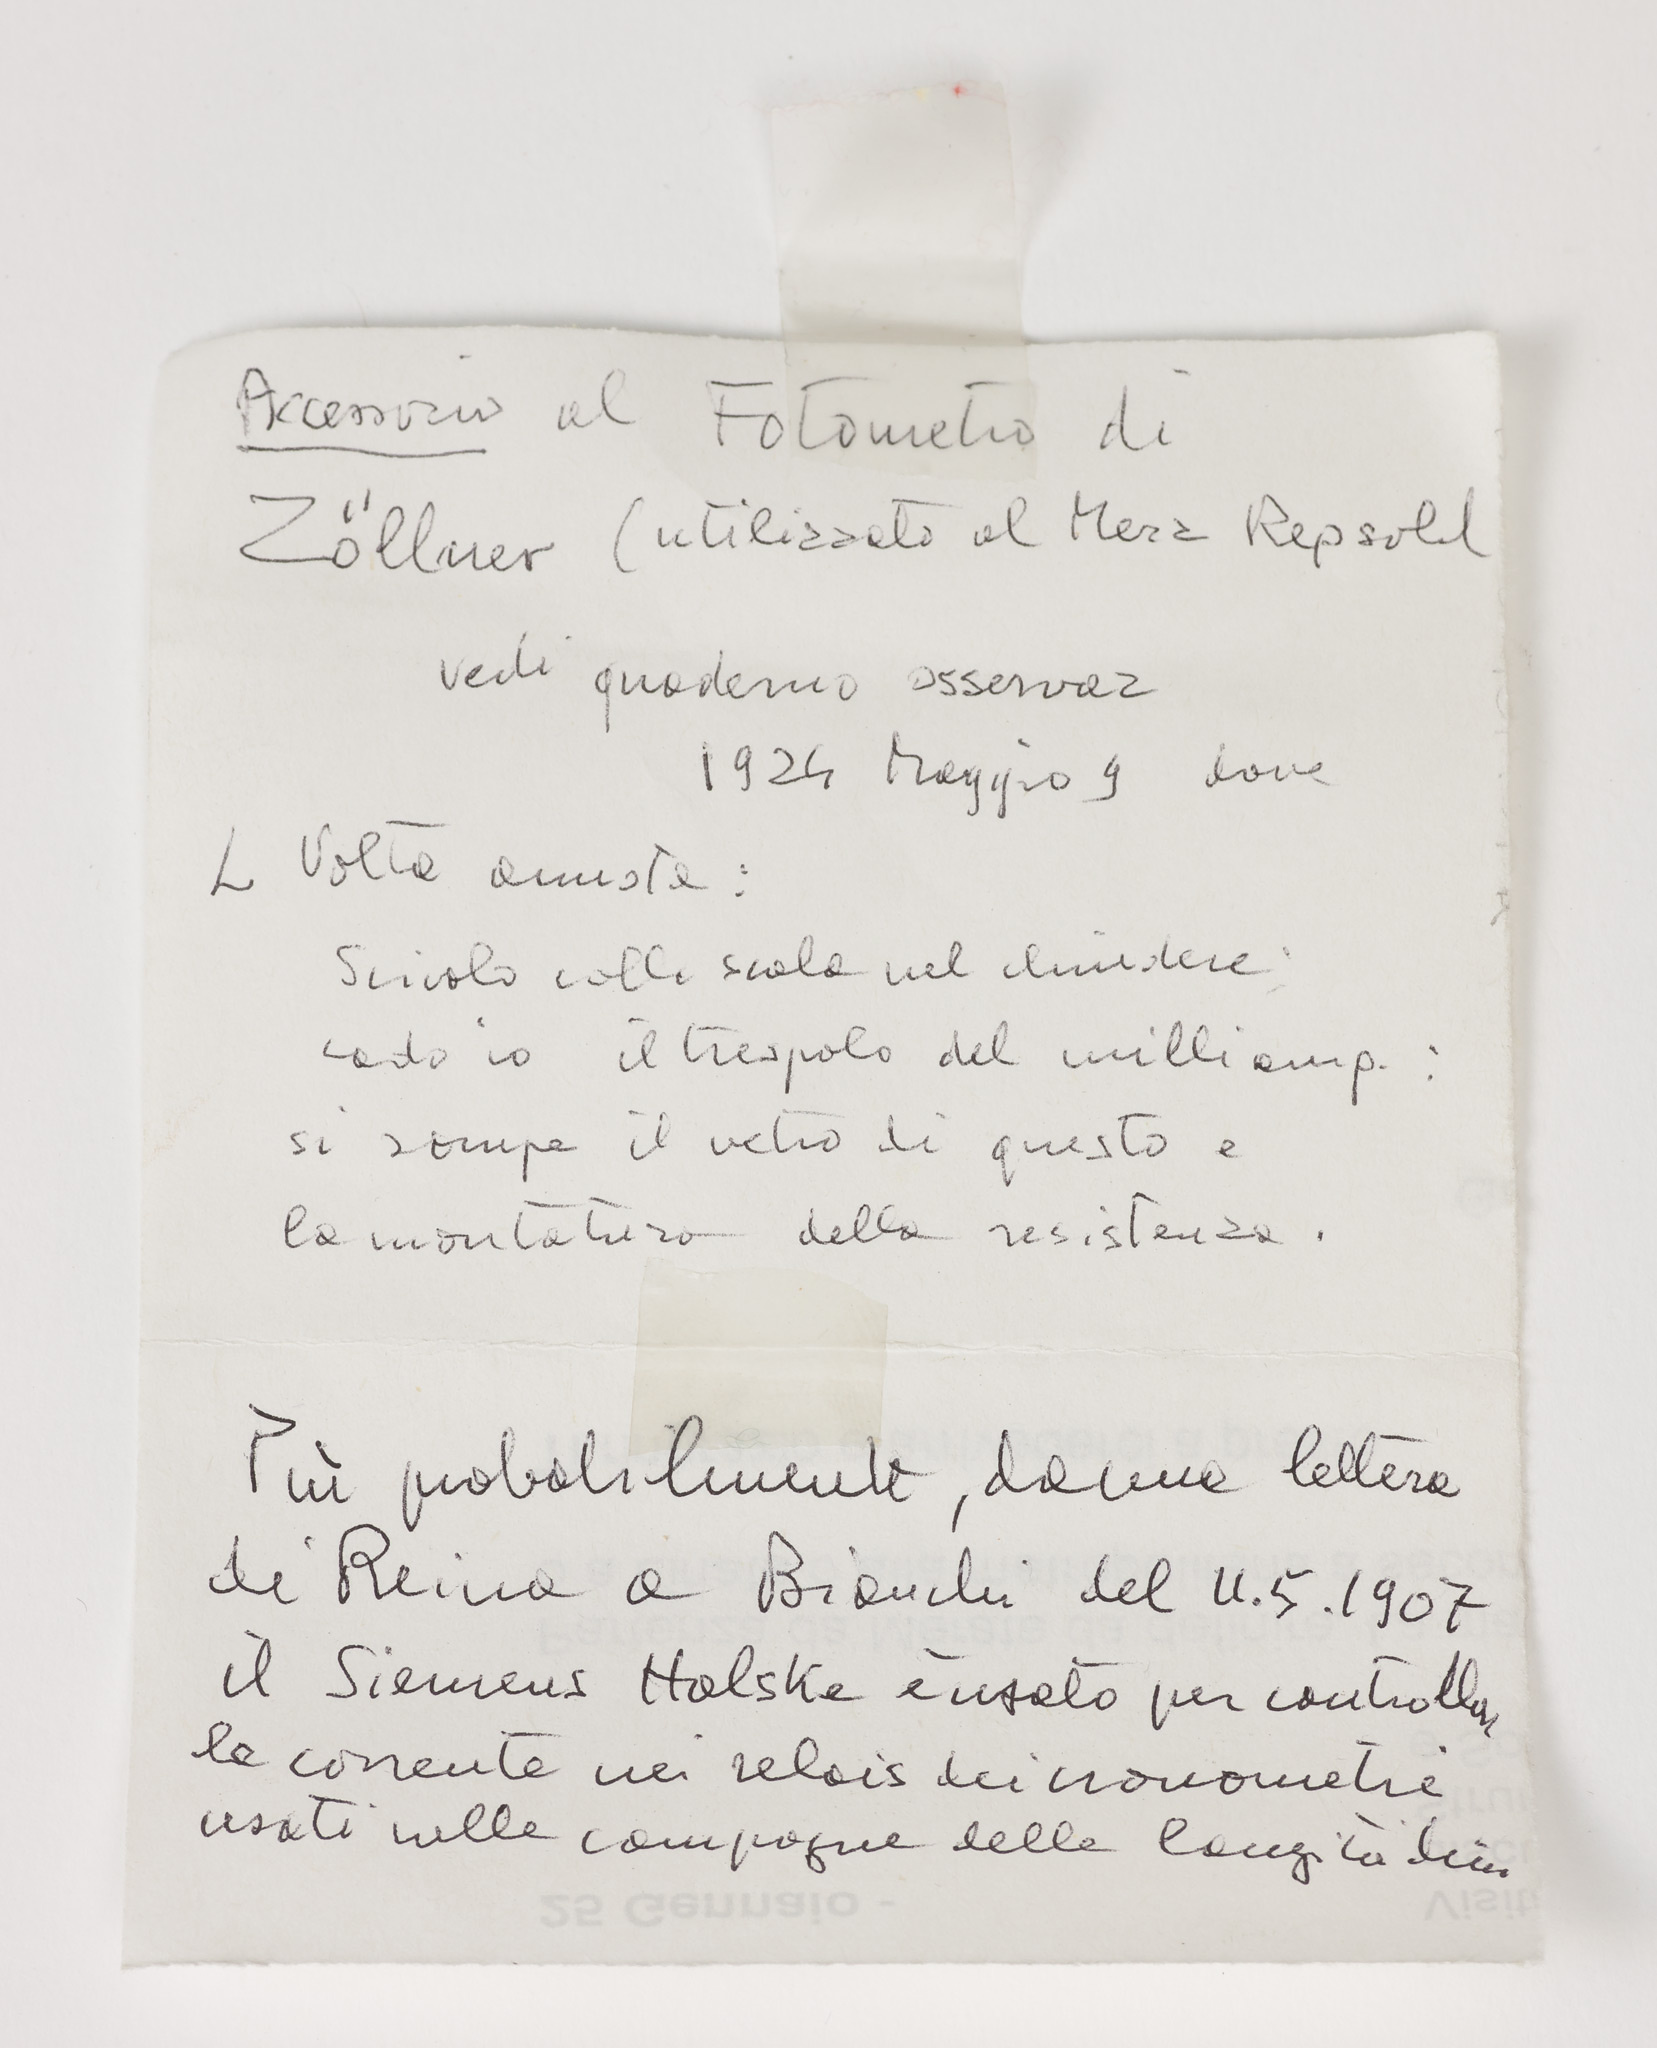 Accessorio al Fotometro di
Zöllner (utilizzato al Merz Repsold
vedi quaderno osservaz
1924 Maggio 9 dove
L Volta annota:
Scivolo colla scala nel chiudere:
cado io il trespolo del milliamp.:
si rompe il vetro di questo e
la montatura della resistenza.
Più probabilmente, da una lettera
di Reina a Bianchi del 11.5.1907
il Siemens Halske è usato per controllar
la corrente nei relais dei cronometri
usati nelle campagne delle longitudini
25 Gennaio -